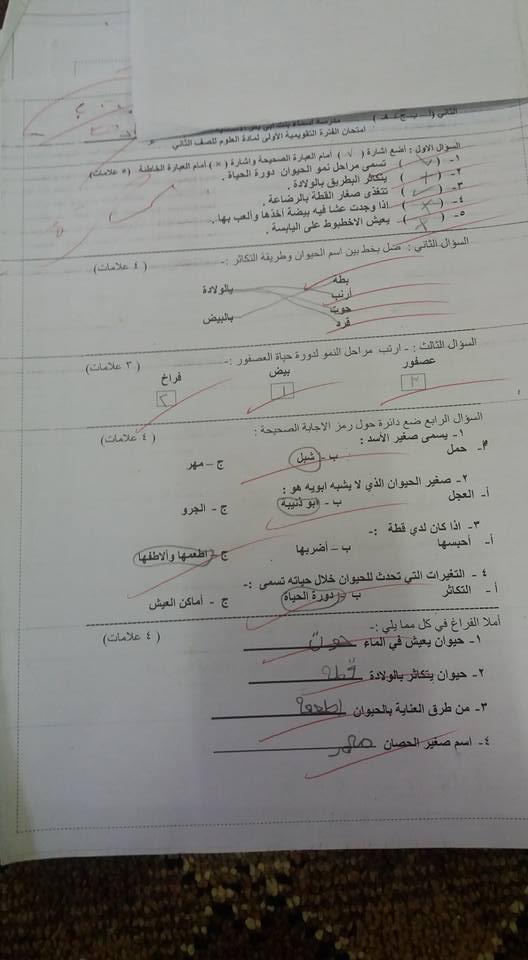 امتحان الفترة التقويمية الاولى لمادة العلوم للصف الثاني
السؤال الاول : أضع اشارة ( √ ) أمام العبارة الصحيحة واشارة ( × ) أمام العبارة الخاطئة . ( ٥ علامات )
١- ( √ ) تسمى مراحل نمو الحيوان دورة الحياة .
٢- ( × ) يتكاثر البطريق بالولادة .
٣- ( √ ) تتغذى صغار القطة بالرضاعة .
٤- ( × ) اذا وجدت عشا فيه بيضة آخذها وألعب بها .
٥- ( × ) يعيش الاخطبوط على اليابسة .
السؤال الثاني : صل بخط بين اسم الحيوان وطريقة التكاثر :- ( ٤ علامات )
بطة
أرنب بالولادة
حوت
قرد بالبيض
السؤال الثالث : - ارتب مراحل النمو لدورة حياة العصفور :- ( ٣ علامات )
عصفور بيض فراخ
٣ ١ ٢
السؤال الرابع ضع دائرة حول رمز الاجابة الصحيحة : ( ٤ علامات )
١- يسمى صغير الأسد :
أ- حمل ب - شبل ج – مهر
٢- صغير الحيوان الذي لا يشبه ابويه هو :
أ- العجل ب - ابو ذنيبه ج - الجرو
٣- اذا كان لدي قطة :-
أ- أحبسها ب – أضربها ج - اطعمها وألاطفها
٤ - التغيرات التي تحدث للحيوان خلال حياته تسمى :-
أ - التكاثر ب - دورة الحياة ج - أماكن العيش
أملا الفراغ في كل مما يلي :- ( ٤ علامات )
١- حيوان يعيش في الماء حوت
٢- حيوان يتكاثر بالولادة قطة
٣- من طرق العناية بالحيوان
٤- اسم صغير الحصان مهر